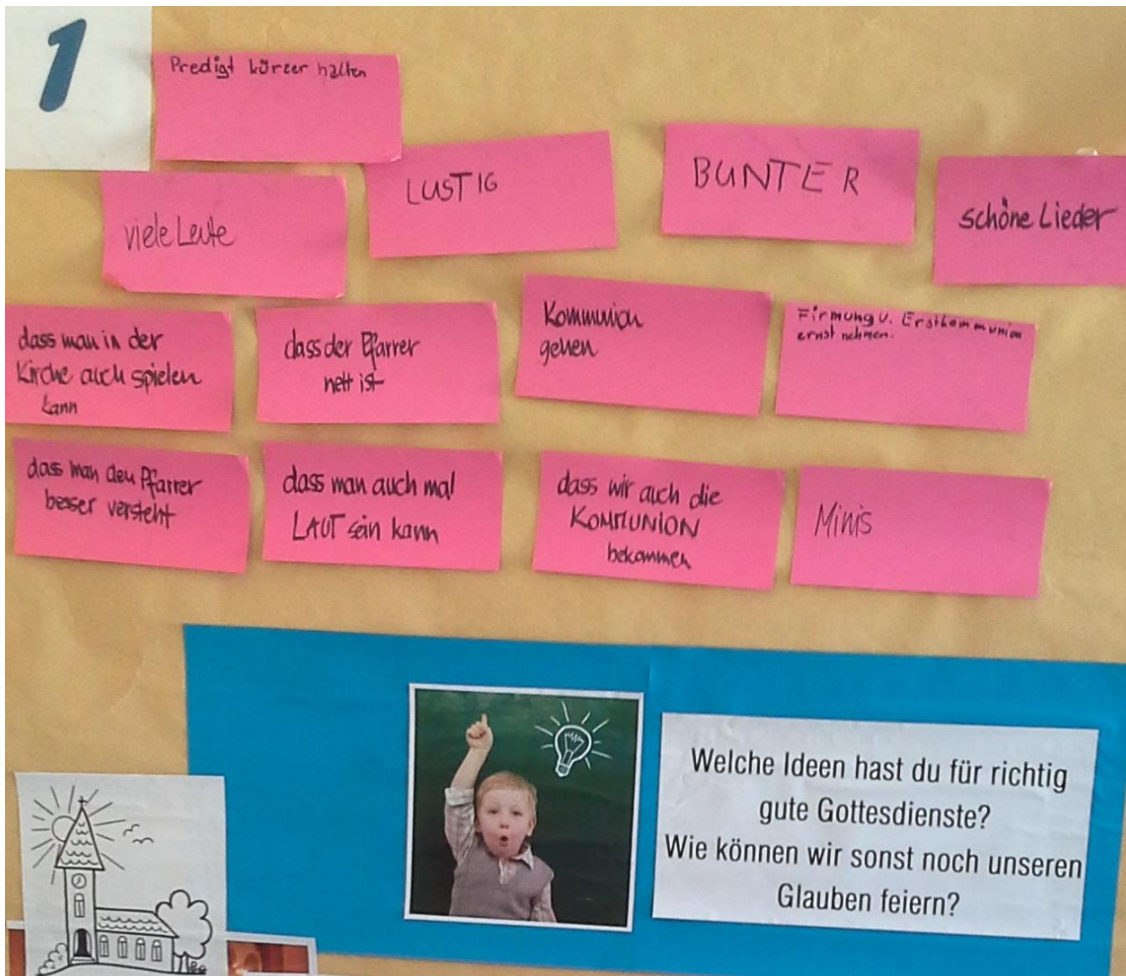 1
Predigt kürzer halten
viele Leute
LUSTIG
BUNTER
schöne Lieder
dass man in der
Kirche auch spielen
kann
dass der Pfarrer
nett ist
Kommunion
gehen
Firmung u. Erstkommunion
ernst nehmen.
dass man den Pfarrer
besser versteht
dass man auch mal
LAUT sein kann
dass wir auch die
KOMMUNION
bekommen
Minis
Welche Ideen hast du für richtig
gute Gottesdienste?
Wie können wir sonst noch unseren
Glauben feiern?